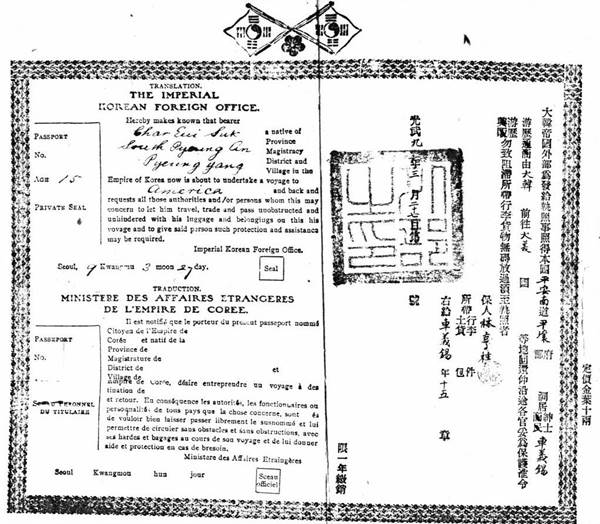 TRANSLATION.
THE IMPERIAL
KOREAN FOREIGN OFFICE.
Hereby makes known that bearer
Char Eui Suk a native of
South Pyeung An Province
Magistracy
Pyeung Yang District and
Village in the
PASSPORT
No.
AGE 15
PRIVATE SEAL
Empire of Korea now is about to undertake a voyage to
America and back and
requests all those authorities and/or persons whom this may
concern to let him travel, trade and pass unobstructed and
unhindered with his luggage and belongings on this his
voyage and to give said person such protection and assistance
may be required.
Imperial Korean Foreign Office.
Seoul, 9 Kwangmu 3 moon 27 day.
Seal
TRADUCTION.
MINISTERE DES AFFAIRES ETRANGERES
DE L'EMPIRE DE COREE.
Il est notifié que le porteur du présent passeport nommé
Citoyen de l'Empire de
Corée et natif de la
Province de
Magistrature de
District de et
Village de
PASSEPORT
No.
AGE
SCEAU PERSONNEL
DU TITULAIRE
Empire de Corée, désire entreprendre un voyage à des
tination de
et retour. En conséquence les autorités, les fonctionnaires ou
personnalités de tous pays que la chose concerne, sont és
de vouloir bien laisser passer librement le susnommé et lui
permettre de circuler sans obstacles et sans obstructions, avec
ses hardes et bagages au cours de son voyage et de lui donner
aide et protection en cas de besoin.
Ministère des Affaires Etrangères
Seoul Kwangmou hun jour
Sceau
officiel
定價金葉十兩
大韓帝國外部爲發給執照事照得本國平安南道平壤府 洞居紳士民車義錫
游歷通商由大韓 前往大美國 等地國環仲沿途各官妥爲保護准令
游歷勿致阻滯所帶行李貨物無碍放過須至執照者
保人林亨柱
所帶行李 件
土貨 包
右給車義錫 年十五 章
號
光武九年三月二七日
限一年繳銷